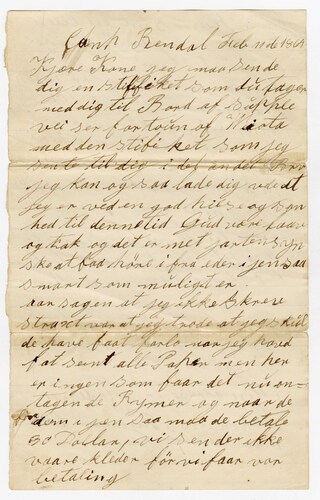 Camp Rendal Feb 11 de 1864
Kjære Kone jeg maa sende
dig en stifiket som du tager
med dig til Bord af supple
veiser for toun af
med den stifi ket som jeg
sente til dig i det andet Brev
jeg kan og saa lade dig viedt
jeg er ved en god hilse og son
hed til denne tid Gud være lovet
og tak og det er met jertens yn
ske at faa høre i fra eder i jen saa
smart som muligt er
aarsagen at jeg ikke skrev
straxt var at jeg trode at jeg skul
de have faat forlo naar jeg havd
fat sent alle Paper men her
er ingen som faar det nu on-
tagende Rymer og naar de
dem i jen saa maa de betale
30 Dollars, vi sender ikke
vaare kleder før vi faar vor
betaling